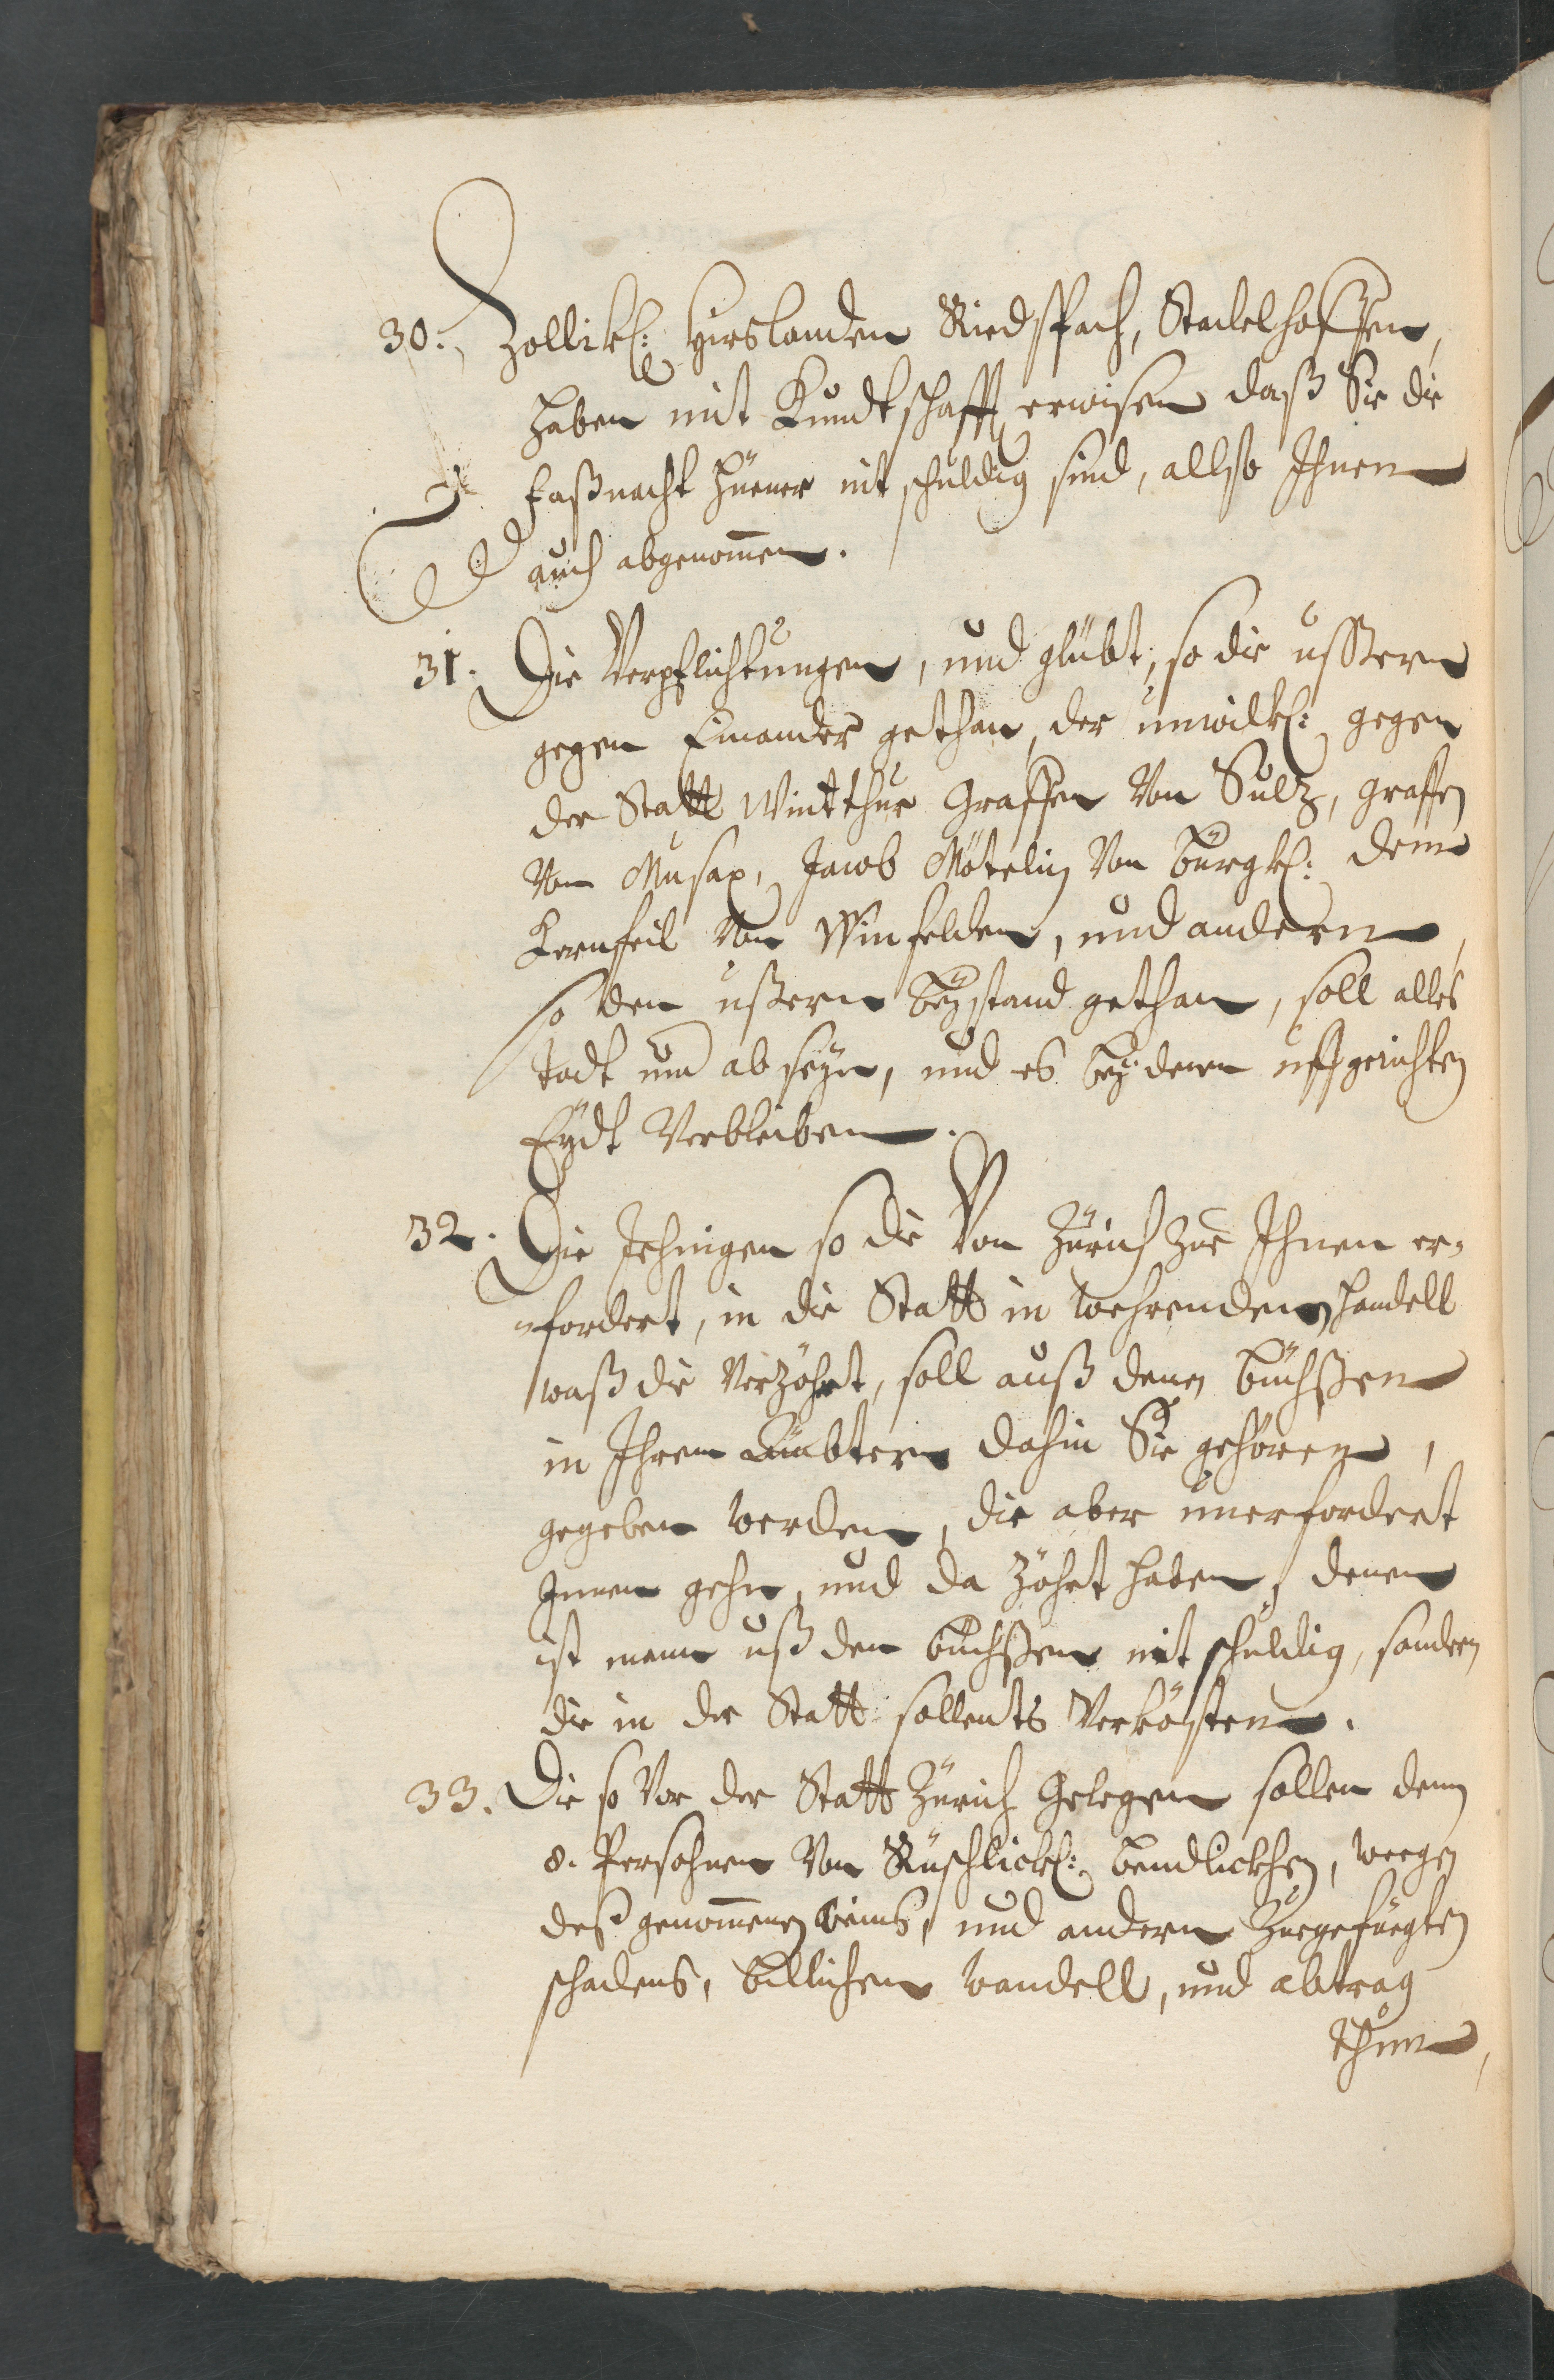 30. Zollik: Hirslanden Riedspach, Stadelhoffen,
haben mit Kundtschafft erwisen daß Sie die
Faßnacht hüener nit schuldig sind, allso Ihnen
auch abgenommen.
31. Die Verpflichtungen, und glübt, so die ussern
gegen Einander gethan, der unwilk: gegen
der Statt Wintthur Graffen Von Sulz, graffen
Von Musax, Jacob Mötelin Von bürgk: dem
Von Winfelden, und andern,
so den ussern beÿstand gethan, soll alles
todt und ab seÿn, und es beÿ denen uffgerichten
Eÿdt Verbleiben.
32. Die Jehnigen so die Von Zürich zue Ihnen er-
-fordert, in die Statt in wehrenden handell
waß die Verzöhrt, soll auß denen büchßen
in Ihren Ämbtern dahin Sie gehören,
gegeben werden, die aber unerfordert
Innen gehn, und da zöhrt haben, denen
ist mann uß den büchßen nit schuldig, sondern
die in der Statt sollents Verkösten.
33. Die so Vor der Statt Zürich Gelegen sollen denn
8. Persohnen Von Rüschlick: bendlickhen, wegen
deß genommenen weins, und andern Zuegefüegten
schadens, billichen wandell, und abtrag
thun,